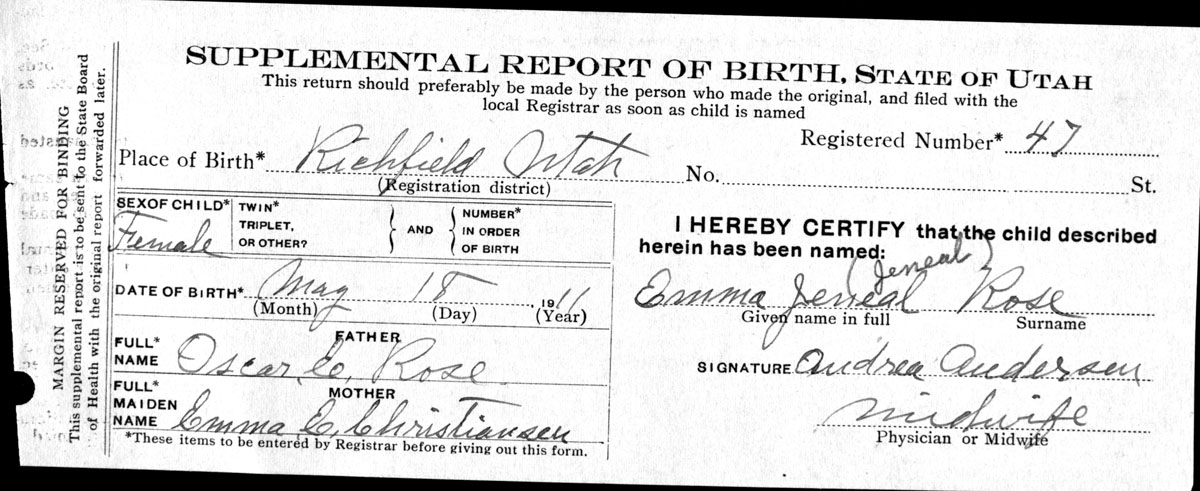 MARGIN RESERVED FOR BINDING
This supplemental report is to be sent to the State Board
of Health with the original report forwarded later.
SUPPLEMENTAL REPORT OF BIRTH, STATE OF UTAH
This return should preferably be made by the person who made the original, and filed with the
local Registrar as soon as child is named
Registered Number* 47
Place of Birth* Richfield Utah No. St.
(Registration district)
SEX OF CHILD* Female
TWIN* TRIPLET, OR OTHER? } AND { NUMBER* IN ORDER OF BIRTH
DATE OF BIRTH* May 18, 1911
(Month) (Day) (Year)
FULL* NAME FATHER
Oscar C. Rose
FULL* MAIDEN NAME MOTHER
Emma E. Christiansen
*These items to be entered by Registrar before giving out this form.
I HEREBY CERTIFY that the child described
herein has been named:
(Jeneal)
Emma Jeneal Rose
Given name in full Surname
SIGNATURE Andrea Andersen
Midwife
Physician or Midwife